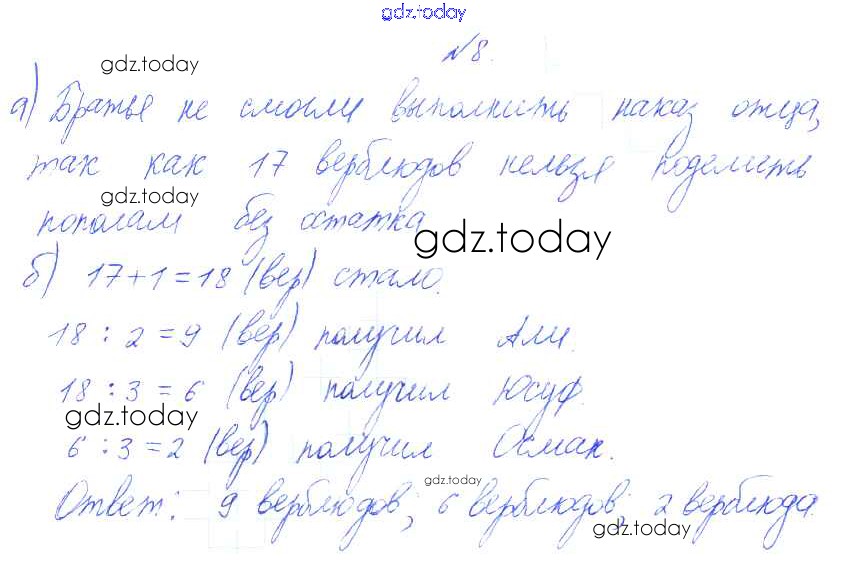 gdz.today
№8.
gdz.today
а) Братья не смогли выполнить наказ отца,
так как 17 верблюдов нельзя поделить
gdz.today
пополам без остатка
gdz.today
б) 17+1=18 (вер) стало.
18 : 2 = 9 (вер) получил Али.
18 : 3 = 6 (вер) получил Юсуф.
gdz.today
6 : 3 = 2 (вер) получил Осман.
gdz.today
Ответ: 9 верблюдов; 6 верблюдов; 2 верблюда.
gdz.today